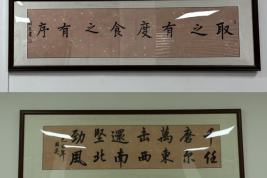 取之有度食之有序
千磨萬击還堅劲
任尔東西南北風